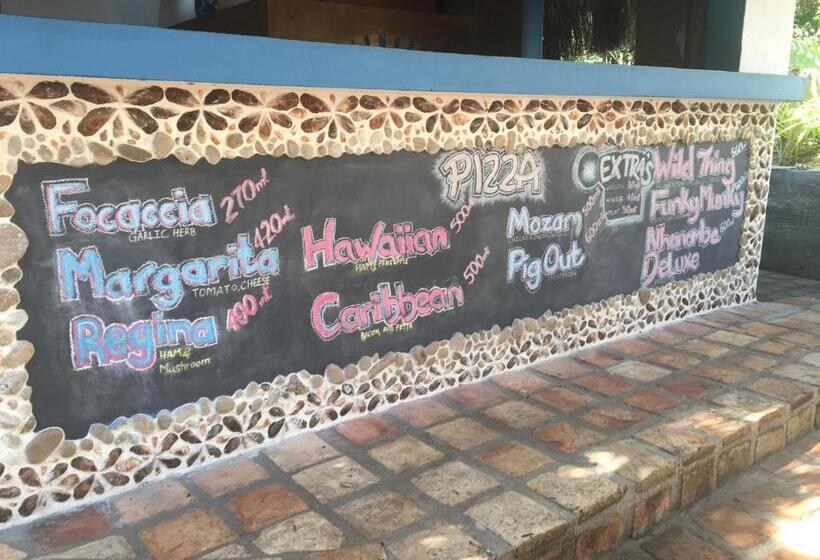 PIZZA
Focaccia 270mt
GARLIC, HERB
Margarita 420mt
TOMATO, CHEESE
Regina 490mt
HAM &
Mushroom
Hawaiian 500
HAM & PINEAPPLE
Caribbean 500mt
BACON, AVO, FETTA
Mozam 500mt
Pig Out 600mt
EXTRA'S
Wild Thing 560
Funky Munky
Nhanombe 600
Deluxe